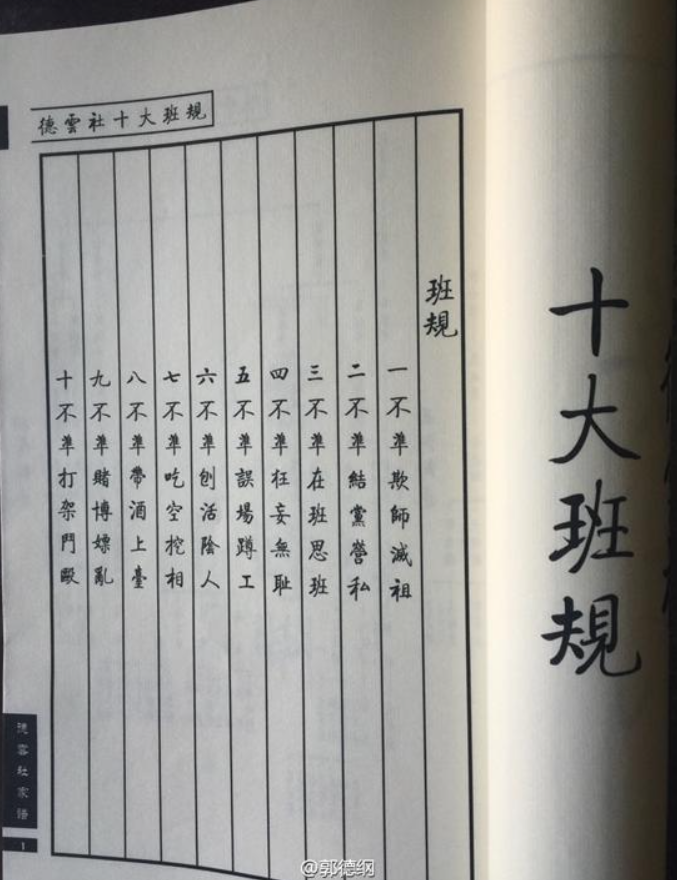 十大班規
德雲社十大班規
班規
一不準欺師滅祖
二不準結黨營私
三不準在班思班
四不準狂妄無耻
五不準誤場蹲工
六不準刨活陰人
七不準吃空挖相
八不準帶酒上臺
九不準賭博嫖亂
十不準打架鬥毆
德雲社家譜
1
@郭德纲